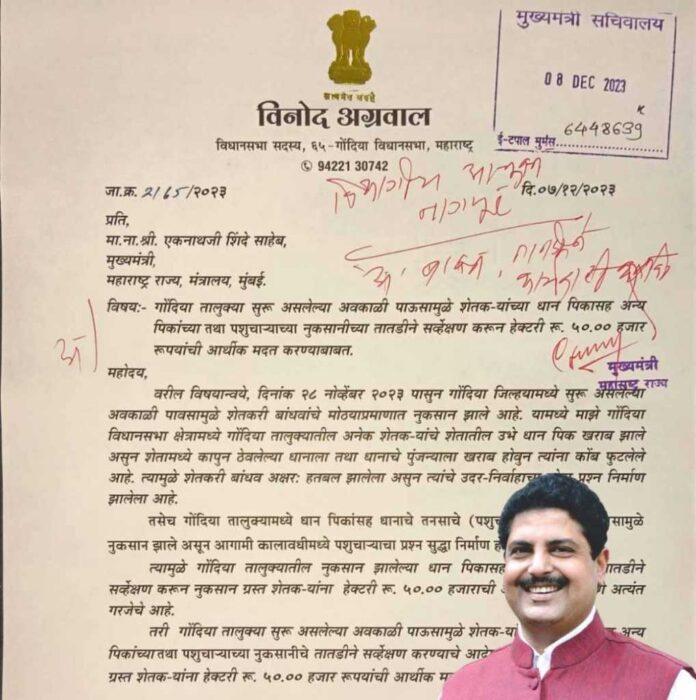 मुख्यमंत्री सचिवालय
08 DEC 2023
ई-टपाल मुर्मस. 6448639
सत्यमेव जयते
विनोद अग्रवाल
विधानसभा सदस्य, ६५-गोंदिया विधानसभा, महाराष्ट्र
94221 30742
जा.क्र. 2165/२०२३
दि.०७/१२/२०२३
विभागीय आयुक्त
नागपूर
प्रति,
मा.ना.श्री. एकनाथजी शिंदे साहेब,
मुख्यमंत्री,
महाराष्ट्र राज्य, मंत्रालय, मुंबई.
विषय:- गोंदिया तालुक्या सुरू असलेल्या अवकाळी पाऊसामुळे शेतक-यांच्या धान पिकासह अन्य
पिकांच्या तथा पशुचाऱ्याच्या नुकसानीच्या तातडीने सर्व्हेक्षण करून हेक्टरी रू. ५०.०० हजार
रूपयांची आर्थिक मदत करण्याबाबत.
मुख्यमंत्री
महाराष्ट्र राज्य
महोदय,
वरील विषयान्वये, दिनांक २८ नोव्हेंबर २०२३ पासुन गोंदिया जिल्हयामध्ये सुरू असलेल्या
अवकाळी पावसामुळे शेतकरी बांधवांचे मोठयाप्रमाणात नुकसान झाले आहे. यामध्ये माझे गोंदिया
विधानसभा क्षेत्रामध्ये गोंदिया तालुक्यातील अनेक शेतक-यांचे शेतातील उभे धान पिक खराब झाले
असुन शेतामध्ये कापुन ठेवलेल्या धानाला तथा धानाचे पुंजन्याला खराब होवुन त्यांना कोंब फुटलेले
आहे. त्यामुळे शेतकरी बांधव अक्षर: हतबल झालेला असुन त्यांचे उदर-निर्वाहाचा प्रश्न निर्माण
झालेला आहे.
तसेच गोंदिया तालुक्यामध्ये धान पिकांसह धानाचे तनसाचे (पशु
नुकसान झाले असून आगामी कालावधीमध्ये पशुचाऱ्याचा प्रश्न सुद्धा निर्माण
त्यामुळे गोंदिया तालुक्यातील नुकसान झालेल्या धान पिकासह तातडीने
सर्व्हेक्षण करून नुकसान ग्रस्त शेतक-यांना हेक्टरी रू. ५०.०० हजाराची अत्यंत
गरजेचे आहे.
तरी गोंदिया तालुक्या सुरू असलेल्या अवकाळी पाऊसामुळे शेतक-यां अन्य
पिकांच्या तथा पशुचाऱ्याच्या नुकसानीचे तातडीने सर्व्हेक्षण करण्याचे आदे
ग्रस्त शेतक-यांना हेक्टरी रू. ५०.०० हजार रूपयांची आर्थिक म